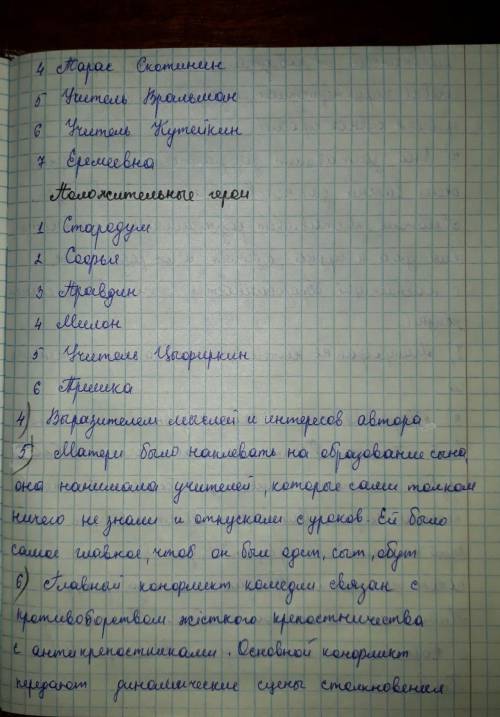 4 Тарас Скотинин
5 Учитель Вральман
6 Учитель Кутейкин
7 Еремеевна
Положительные герои
1 Стародум
2 Софья
3 Правдин
4 Милон
5 Учитель Цыфиркин
6 Тришка
4) Выразителем мыслей и интересов автора
5) Матери было наплевать на образование сына,
она нанимала учителей, которые сами толком
ничего не знали и отпускали с уроков. Ей было
самое главное, чтоб он был одет, сыт, обут
6) Главный конфликт комедии связан с
противоборством жёсткого крепостничества
с антикрепостниками. Основной конфликт
передают динамические сцены столкновения